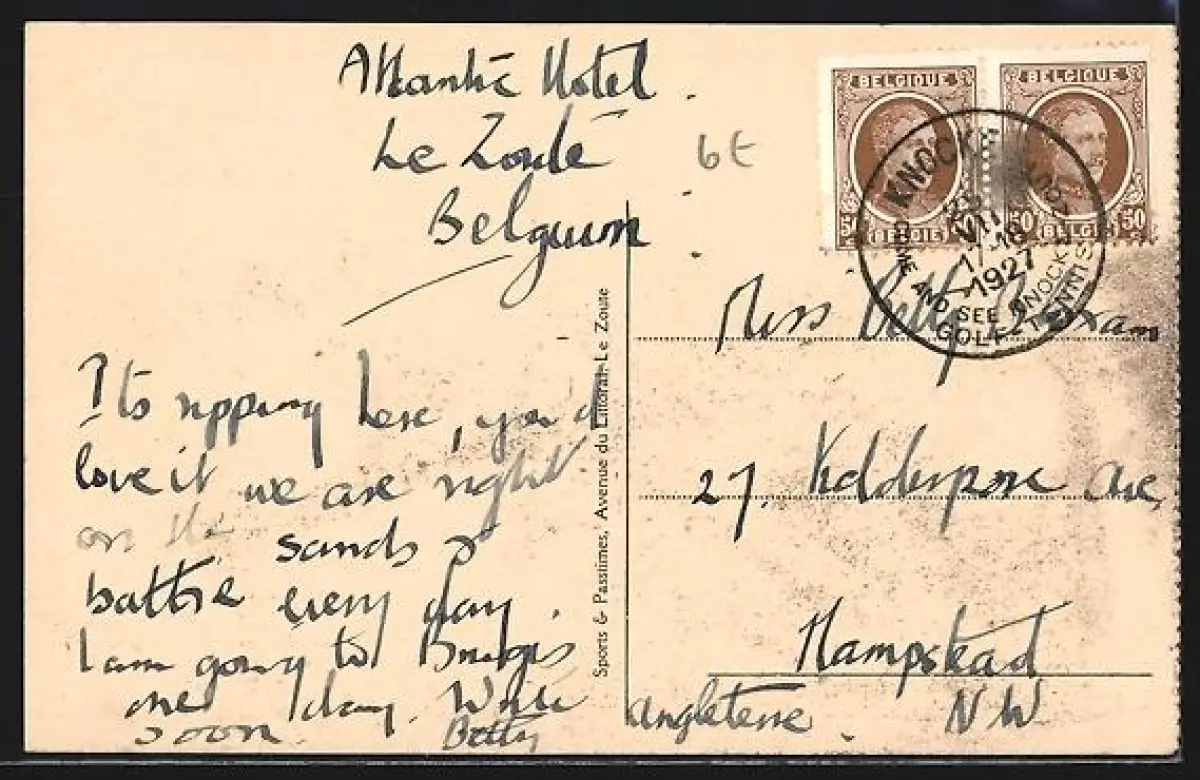 Atlantic Hotel.
Le Zoute
Belgium
6t
Its ripping here, you d
love it we are right
on the sands &
bathe every day.
I am going to Bruges
one day. Write
soon. Betty
Sports & Passtimes, Avenue du Littoral-Le Zoute
BELGIQUE
50 BELGIE
BELGIQUE
50 BELGIE 50
KNOCKE ZOUTE
VIII
17-18
1927
COME AND SEE KNOCKE
GOLF TENNIS
Miss Betty
27, Kidderpore Ave,
Hampstead
Angleterre. NW